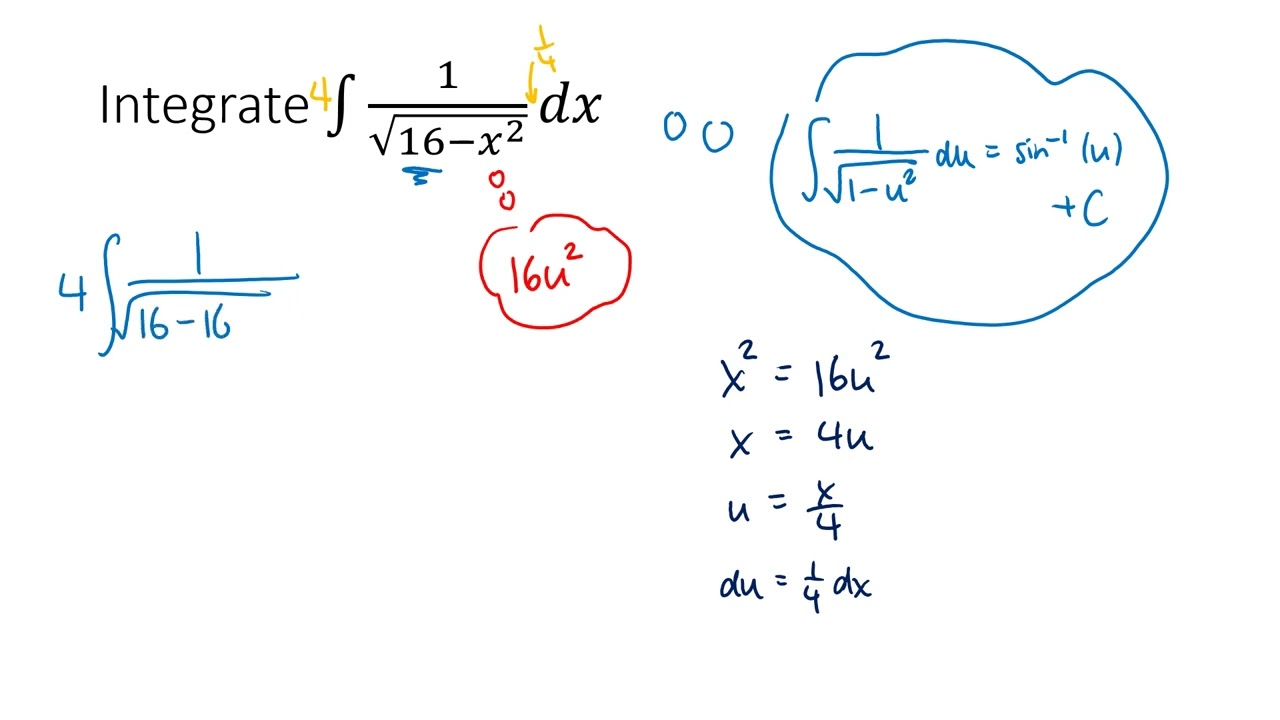 Integrate 4∫ 1/√(16−x²) 1/4 dx
∫ 1/√(1−u²) du = sin⁻¹(u)
+C
16u²
4∫ 1/√(16−16
x² = 16u²
x = 4u
u = x/4
du = 1/4 dx